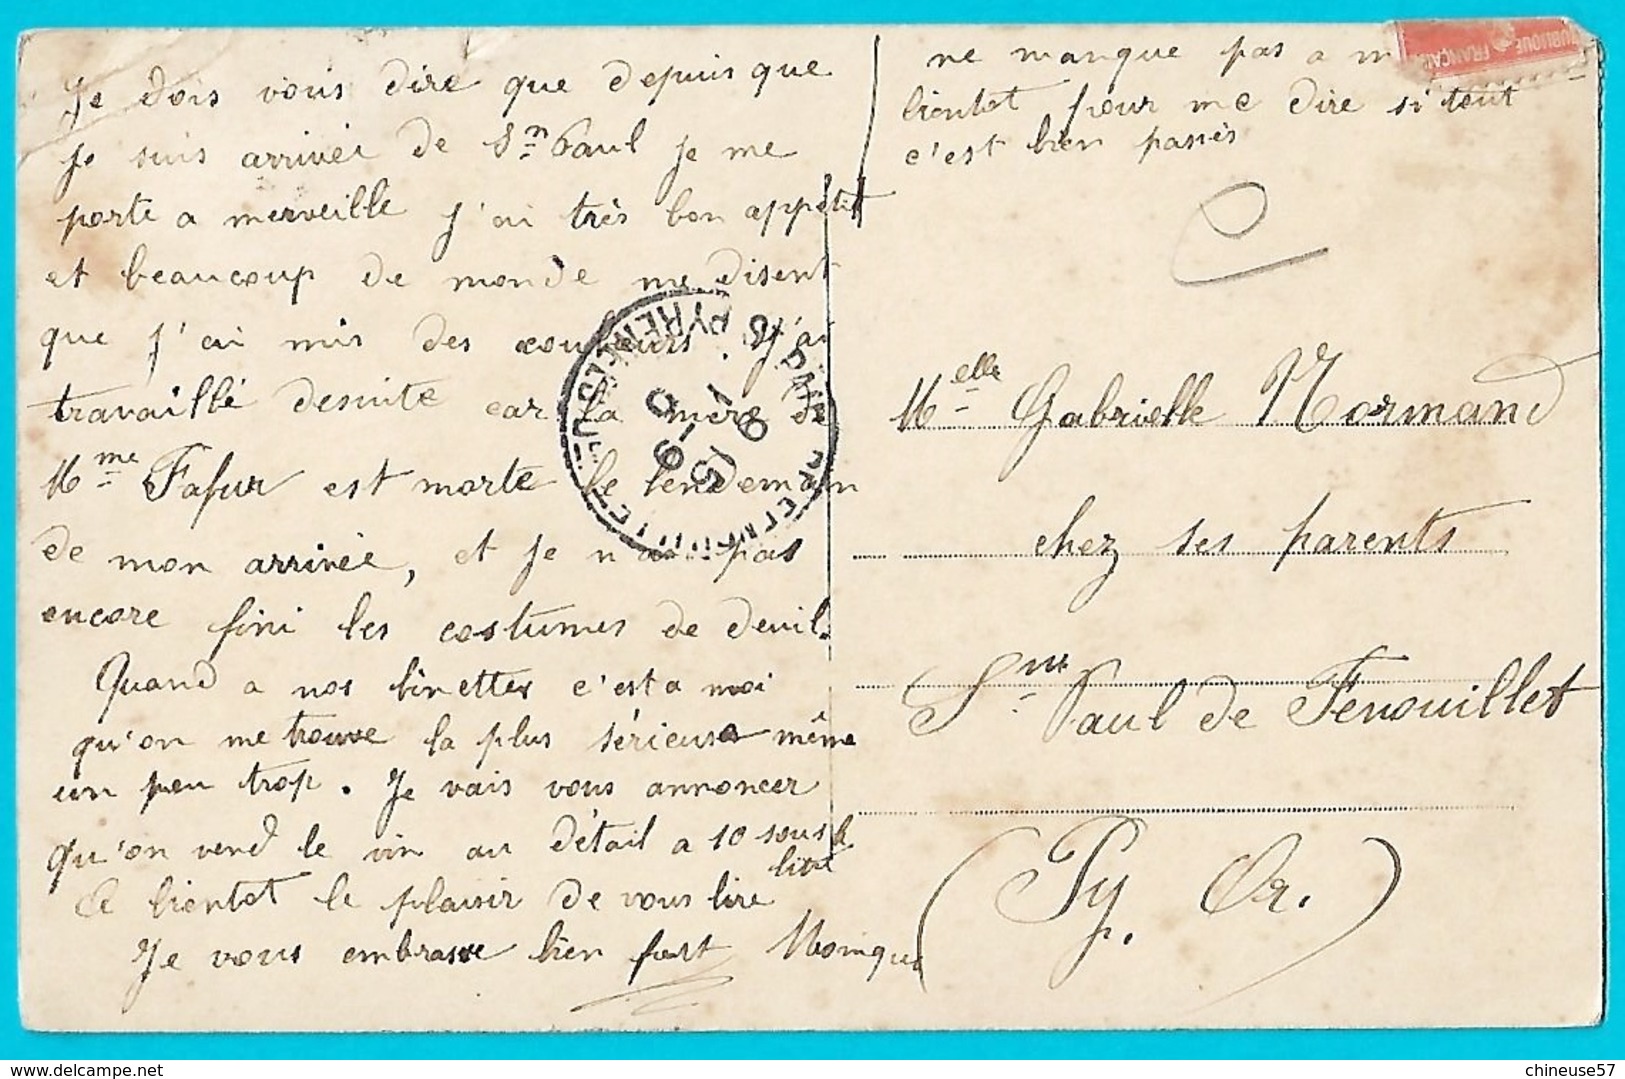 Je dois vous dire que depuis que
je suis arrivée de Sn Paul je me
porte a merveille j'ai très bon appétit
et beaucoup de monde me disent
que j'ai mis des couleurs. J'ai
travaillé desuite car la mère de
Mme Fafur est morte le lendemain
de mon arrivée, et je n'ai pas
encore fini les costumes de deuil.
Quand a nos binettes c'est a moi
qu'on me trouve la plus sérieuse même
un peu trop. Je vais vous annoncer
qu'on vend le vin au détail a 10 sous le
litre
A bientot le plaisir de vous lire
Je vous embrasse bien fort Monique
ne manque pas a m
bientot pour me dire si tout
c'est bien passés
UBLIQUE FRANÇAI
PYRENEES
Melle Gabrielle Normand
chez ses parents
Snt Paul de Fenouillet
(Py. Or.)
chineuse57